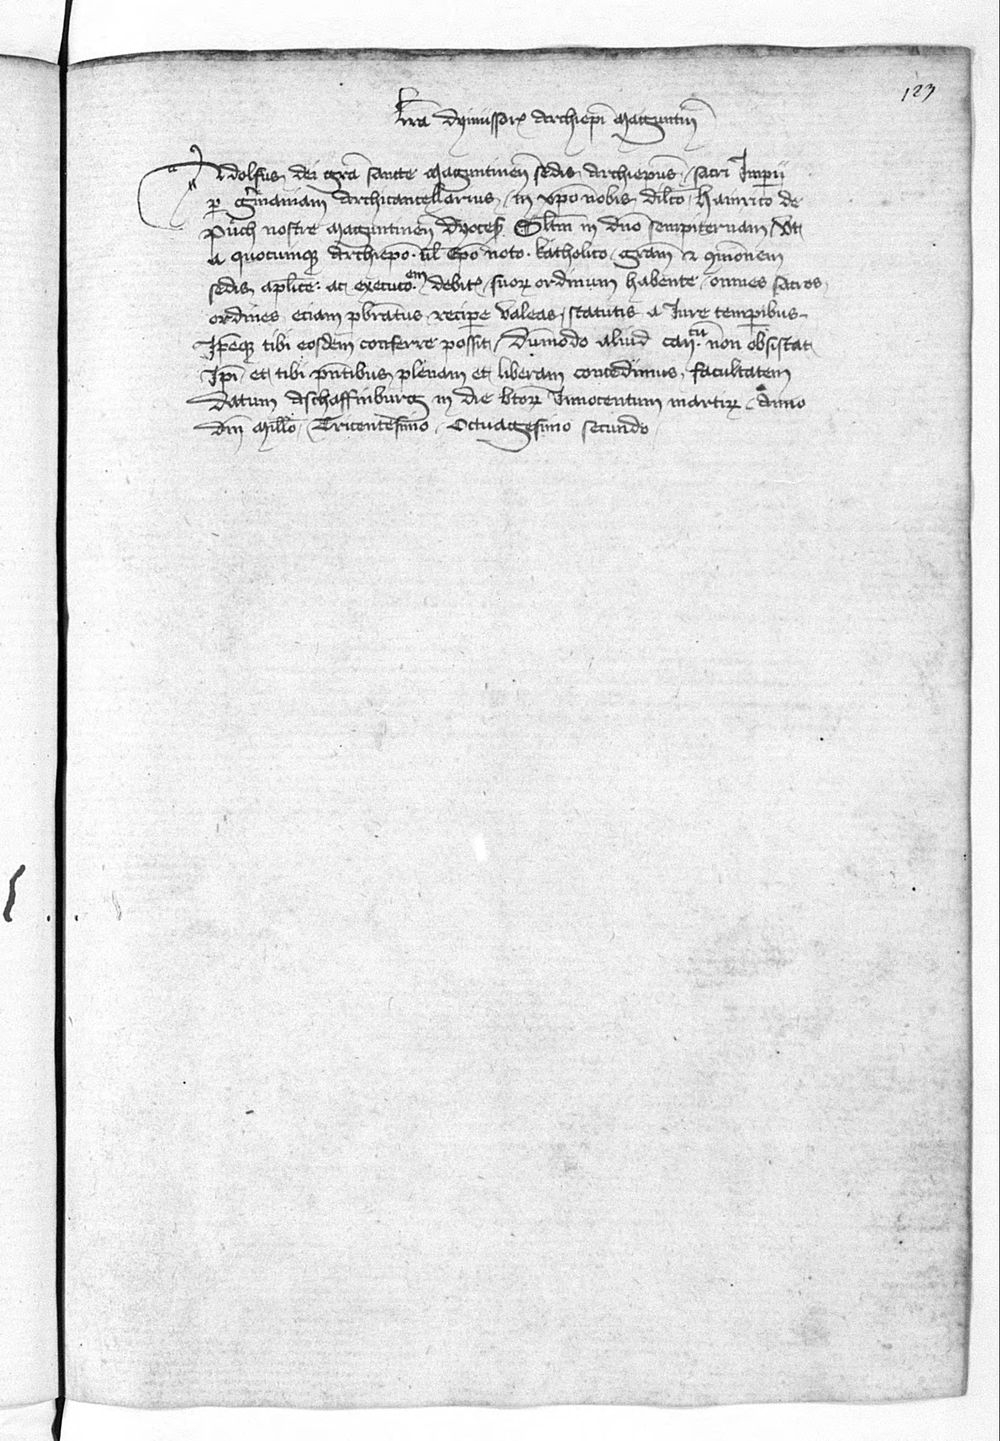 123
Lr̄a Dymissor Archiepī Magūntiñ
Adolfus dei gr̄a sancte Maguntineñ sedis Archiepūs sacri Imperij
p̱ Germaniam Archicancellarius in xp̄o nobis dilc̄o Hainrico de
Püch nostre Maguntineñ dyoceß Sal̄tm in dn̄o sempiternam Vt
A quocunq̨ Archiepō vl̄ Ep̄o noto katholico gram̄ & ɔmūōnem
sedis apl̄ice ac executoem debitā suoꝝ ordinum habente omnes sacros
ordines eciam pb̄ratus recipe valeas statutis a Iure tempibus
Ip̄eq̨ tibi eosdem conferre possit Dūmodo aliud canīcū non obsistat
Ip̄i et tibi pn̄tibus plenam et liberam concedimus facultatem
Datum Aschaffinburg in die btōꝝ Innocentum martiꝝ Anno
Dn̄i Mill̄o Tricentesimo Octuagesimo secundo